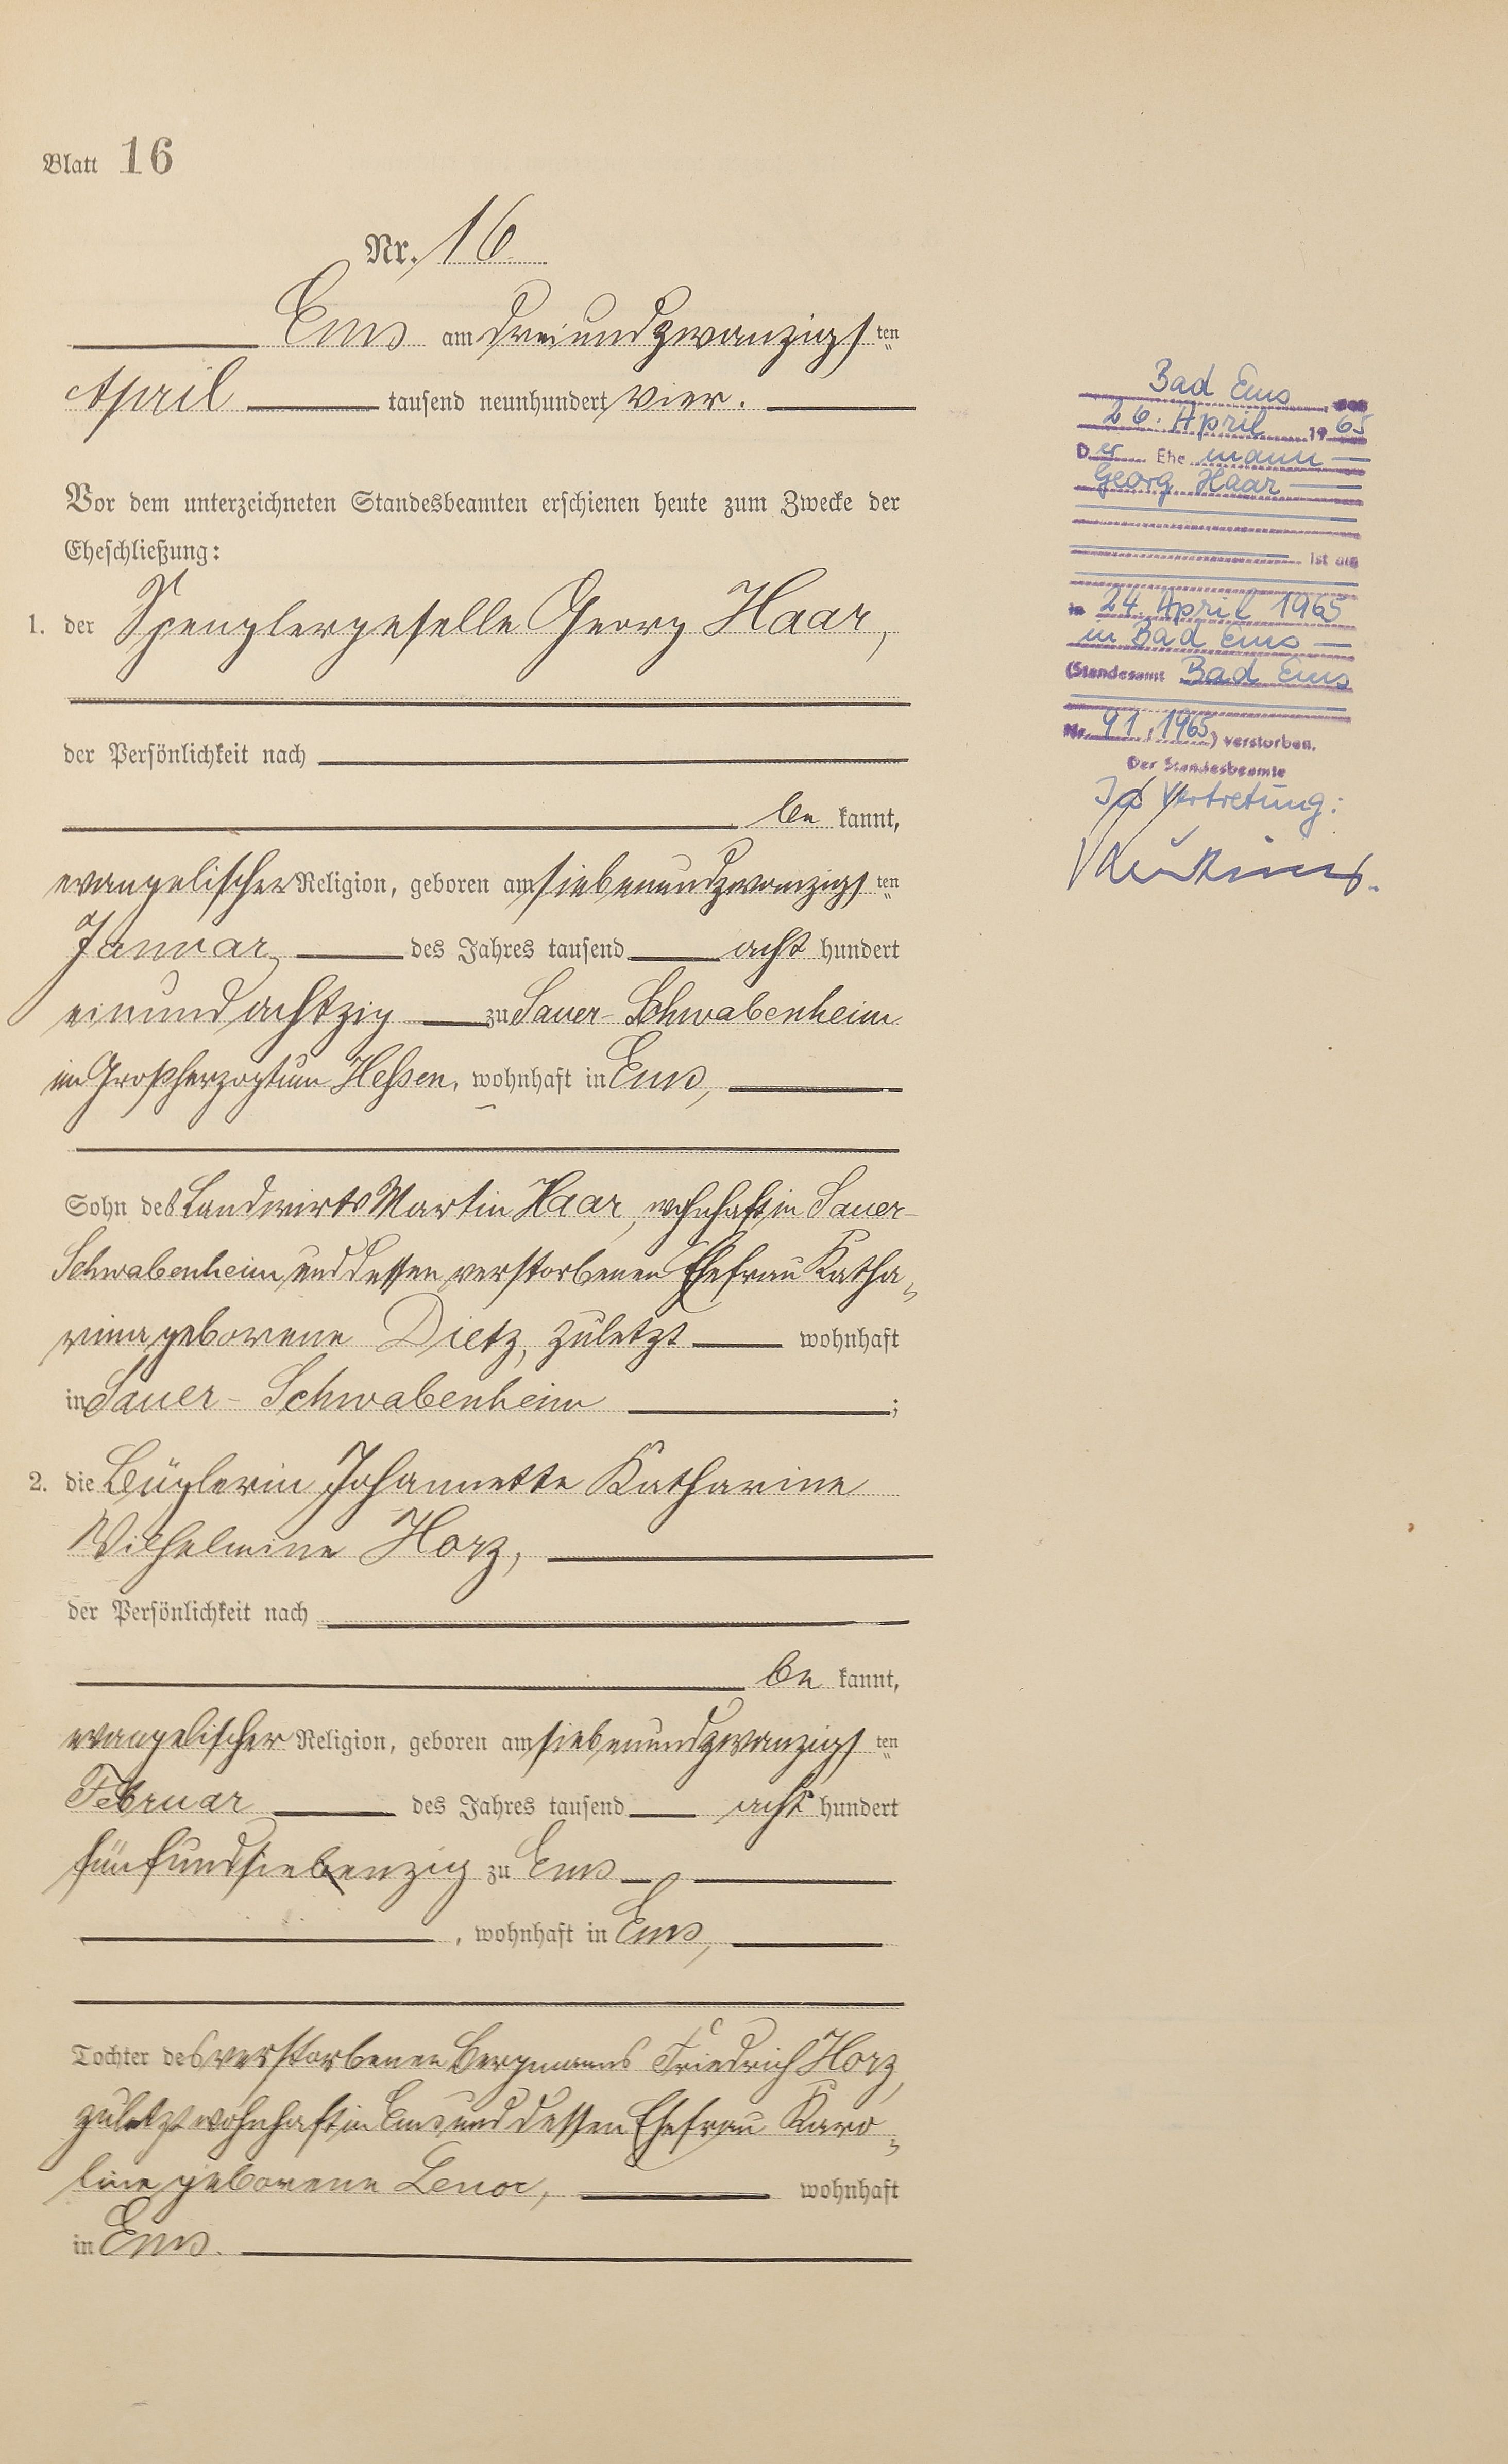 Blatt 16
Nr. 16
Ems am dreiundzwanzigsten
April tausend neunhundert vier.
Vor dem unterzeichneten Standesbeamten erschienen heute zum Zwecke der
Eheschließung:
1. der Spenglergeselle Georg Haar,
der Persönlichkeit nach
be kannt,
evangelischer Religion, geboren am siebenundzwanzigsten
Januar des Jahres tausend acht hundert
einundachtzig zu Sauer-Schwabenheim
im Großherzogtum Hessen, wohnhaft in Ems,
Sohn des Landwirts Martin Haar, wohnhaft in Sauer-
Schwabenheim und dessen verstorbenen Ehefrau Katha-
rina geborene Dietz, zuletzt wohnhaft
in Sauer-Schwabenheim ;
2. die Büglerin Johannette Katharine
Wilhelmine Horz,
der Persönlichkeit nach
be kannt,
evangelischer Religion, geboren am siebenundzwanzigsten
Februar des Jahres tausend acht hundert
fünfundsiebenzig zu Ems
, wohnhaft in Ems,
Tochter des verstorbenen Bergmanns Friedrich Horz,
zuletzt wohnhaft in Ems und dessen Ehefrau Karo-
line geborene wohnhaft
in Ems.
Bad Ems, den
26. April 1965
Der Ehemann
Georg Haar
ist am
24. April 1965
in Bad Ems
(Standesamt Bad Ems
Nr. 91/1965) verstorben.
Der Standesbeamte
In Vertretung: